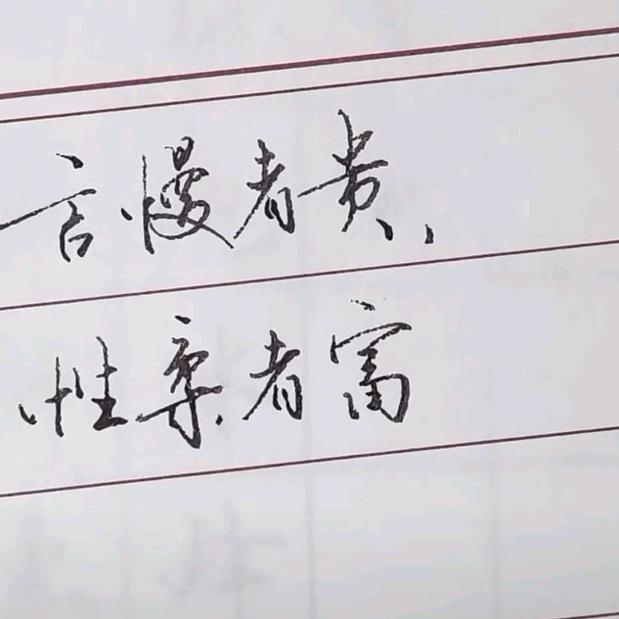 言慢者贵,
性柔者富